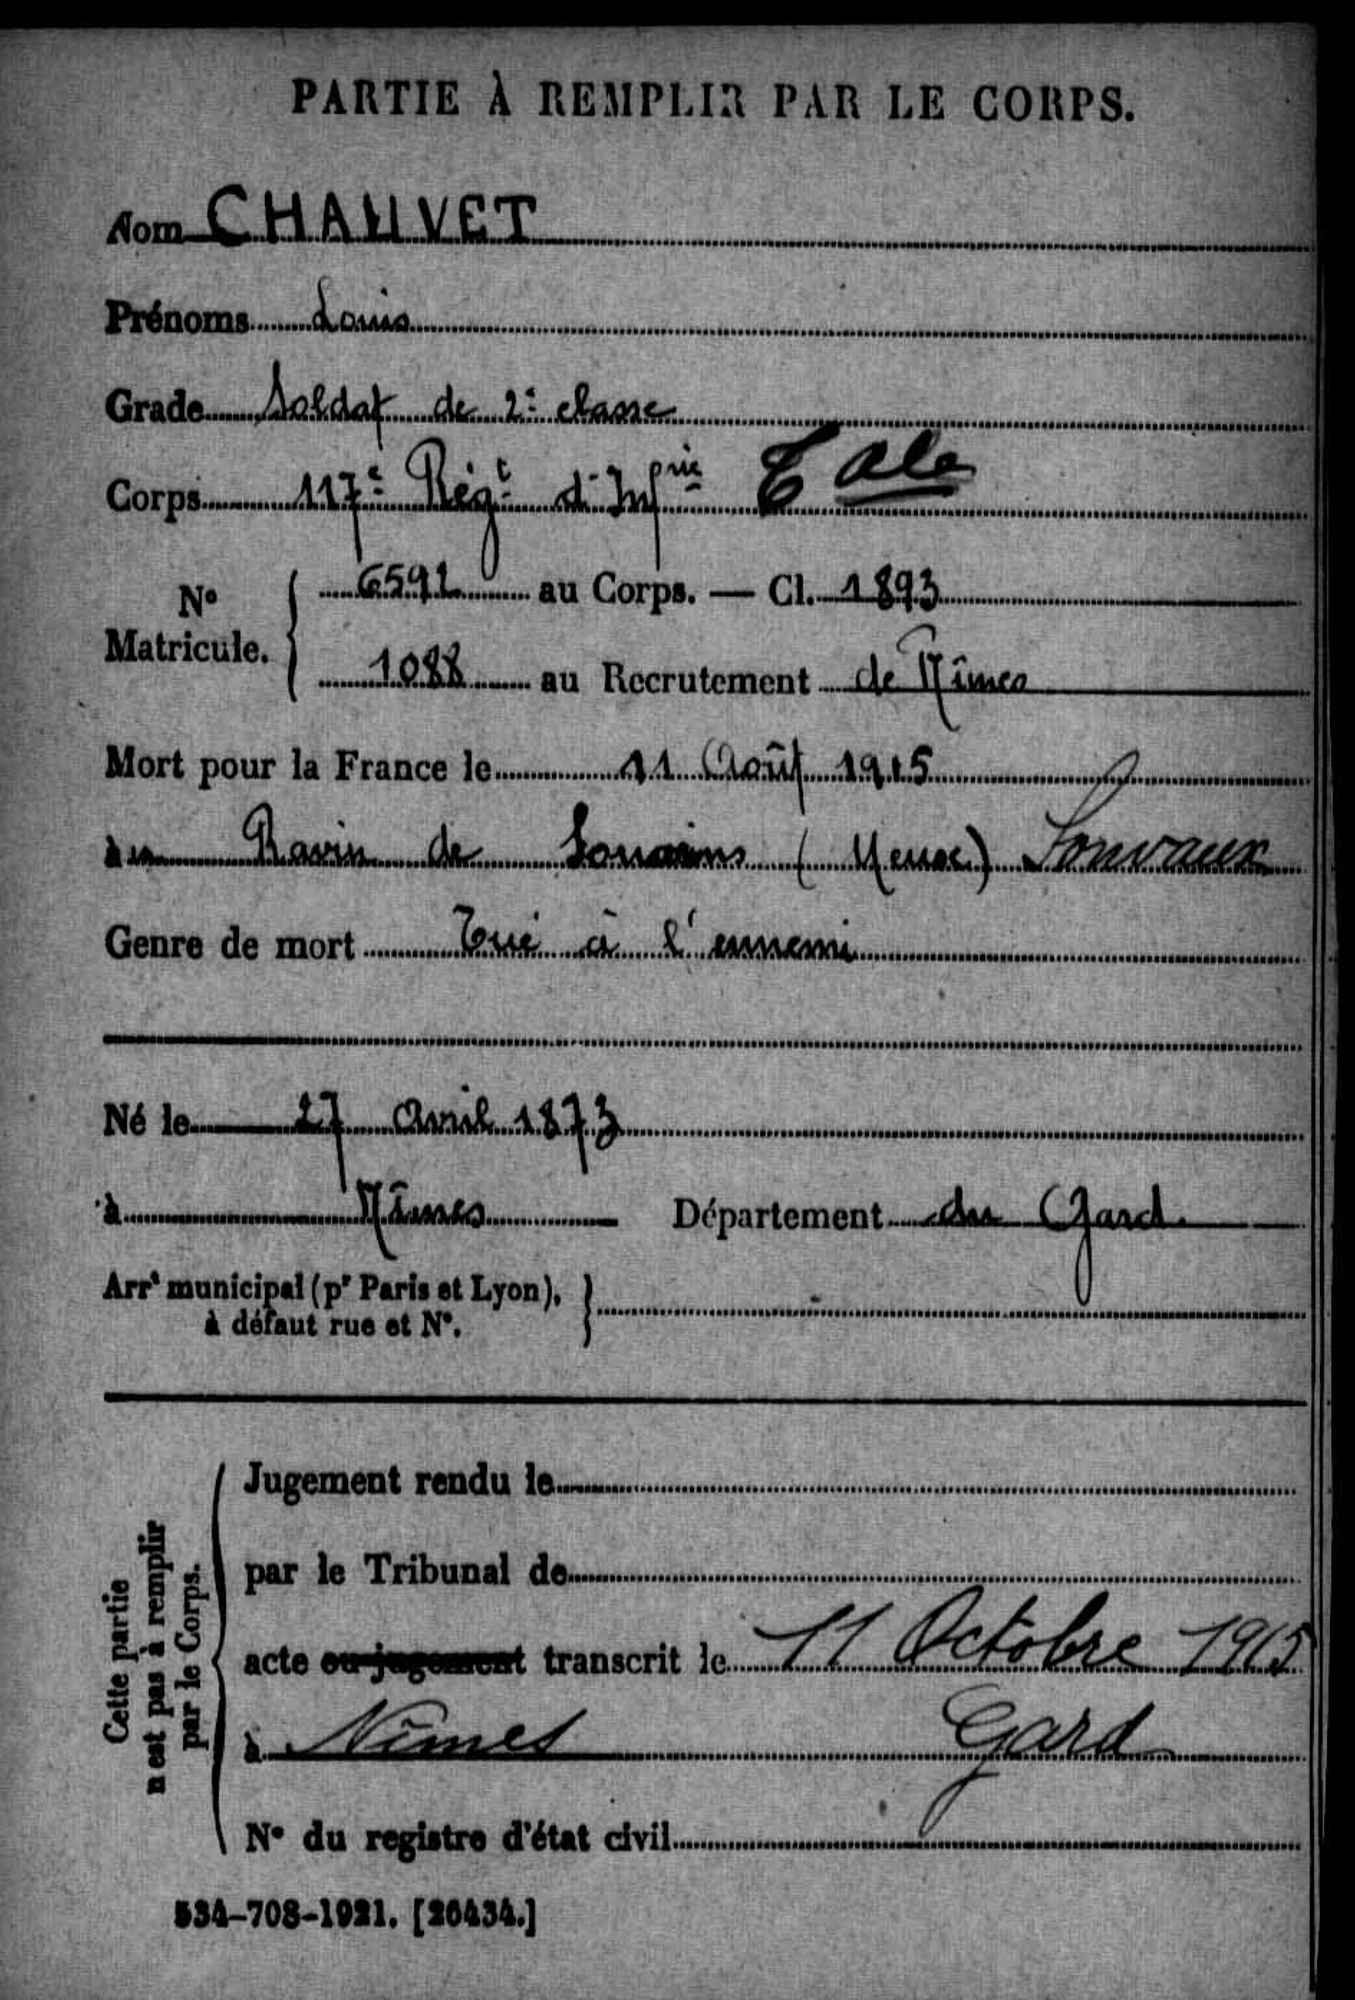 PARTIE À REMPLIR PAR LE CORPS.
Nom CHAUVET
Prénoms Louis
Grade Soldat de 2e classe
Corps 117e Régt d'Infrie
N° Matricule. 6591 au Corps. — Cl. 1893
1088 au Recrutement de Nîmes
Mort pour la France le 11 Août 1915
Ravin de (Meuse) Sonvaux
Genre de mort Tué à l'ennemi
Né le 27 Avril 1873
à Nîmes Département du Gard
Arrt municipal (pr Paris et Lyon),
à défaut rue et N°.
Cette partie
n'est pas à remplir
par le Corps.
Jugement rendu le
par le Tribunal de
acte ou jugement transcrit le 11 Octobre 1915
à Nîmes Gard
N° du registre d'état civil
534-708-1921. [26434.]